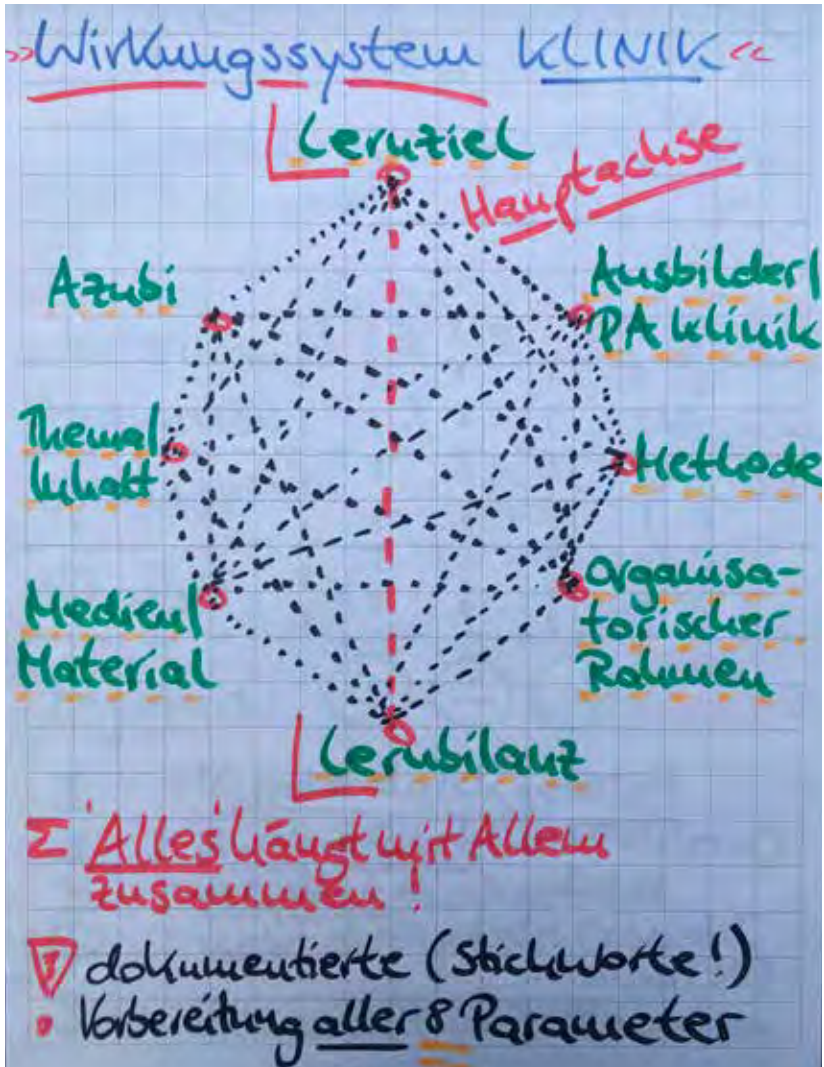 »Wirkungssystem KLINIK«
Lernziel
Hauptachse
Azubi
Ausbilder/
PA Klinik
Thema/
Inhalt
Methode
Medien/
Material
Organisa-
torischer
Rahmen
Lernbilanz
Σ 'Alles' hängt mit Allem
zusammen!
! dokumentierte (Stichworte!)
• Vorbereitung aller 8 Parameter